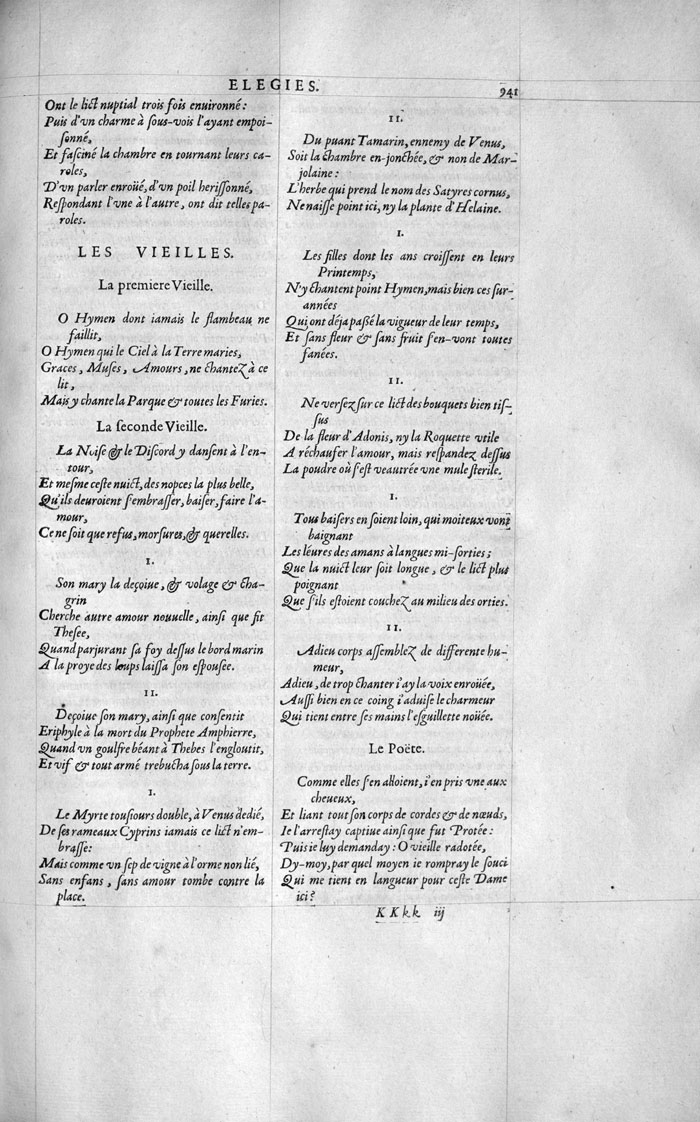 ELEGIES.
941
Ont le lict nuptial trois fois enuironné:
Puis d'vn charme à sous-vois l'ayant empoi-
sonné,
Et fasciné la chambre en tournant leurs ca-
roles,
D'vn parler enroüé, d'vn poil herissonné,
Respondant l'vne à l'autre, ont dit telles pa-
roles.
LES VIEILLES.
La premiere Vieille.
O Hymen dont iamais le flambeau ne
faillit,
O Hymen qui le Ciel à la Terre maries,
Graces, Muses, Amours, ne chantez à ce
lit,
Mais y chante la Parque & toutes les Furies.
La seconde Vieille.
La Noise & le Discord y dansent à l'en-
tour,
Et mesme ceste nuict, des nopces la plus belle,
Qu'ils deuroient s'embrasser, baiser, faire l'a-
mour,
Ce ne soit que refus, morsures, & querelles.
I.
Son mary la deçoiue, & volage & cha-
grin
Cherche autre amour nouuelle, ainsi que fit
Thesee,
Quand parjurant sa foy dessus le bord marin
A la proye des loups laissa son espousee.
II.
Deçoiue son mary, ainsi que consentit
Eriphyle à la mort du Prophete Amphierre,
Quand vn goulfre béant à Thebes l'engloutit,
Et vif & tout armé trebucha sous la terre.
I.
Le Myrte tousiours double, à Venus dedié,
De ses rameaux Cyprins iamais ce lict n'em-
brasse:
Mais comme vn sep de vigne à l'orme non lié,
Sans enfans, sans amour tombe contre la
place.
II.
Du puant Tamarin, ennemy de Venus,
Soit la chambre en-jonchée, & non de Mar-
jolaine:
L'herbe qui prend le nom des Satyres cornus,
Ne naisse point ici, ny la plante d'Helaine.
I.
Les filles dont les ans croissent en leurs
Printemps,
N'y chantent point Hymen, mais bien ces sur-
années
Qui ont déja passé la vigueur de leur temps,
Et sans fleur & sans fruit s'en-vont toutes
fanées.
II.
Ne versez sur ce lict des bouquets bien tis-
sus
De la fleur d'Adonis, ny la Roquette vtile
A réchaufer l'amour, mais respandez dessus
La poudre où s'est veautrée vne mule sterile.
I.
Tous baisers en soient loin, qui moiteux vont
baignant
Les léures des amans à langues mi-sorties;
Que la nuict leur soit longue, & le lict plus
poignant
Que s'ils estoient couchez au milieu des orties.
II.
Adieu corps assemblez de differente hu-
meur,
Adieu, de trop chanter i'ay la voix enroüée,
Aussi bien en ce coing i'aduise le charmeur
Qui tient entre ses mains l'esguillette noüée.
Le Poëte.
Comme elles s'en alloient, i'en pris vne aux
cheueux,
Et liant tout son corps de cordes & de nœuds,
Ie l'arrestay captiue ainsi que fut Protée:
Puis ie luy demanday: O vieille radotée,
Dy-moy, par quel moyen ie rompray le souci
Qui me tient en langueur pour ceste Dame
ici?
KKkk iij